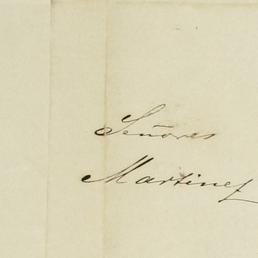 Señores
Martinez